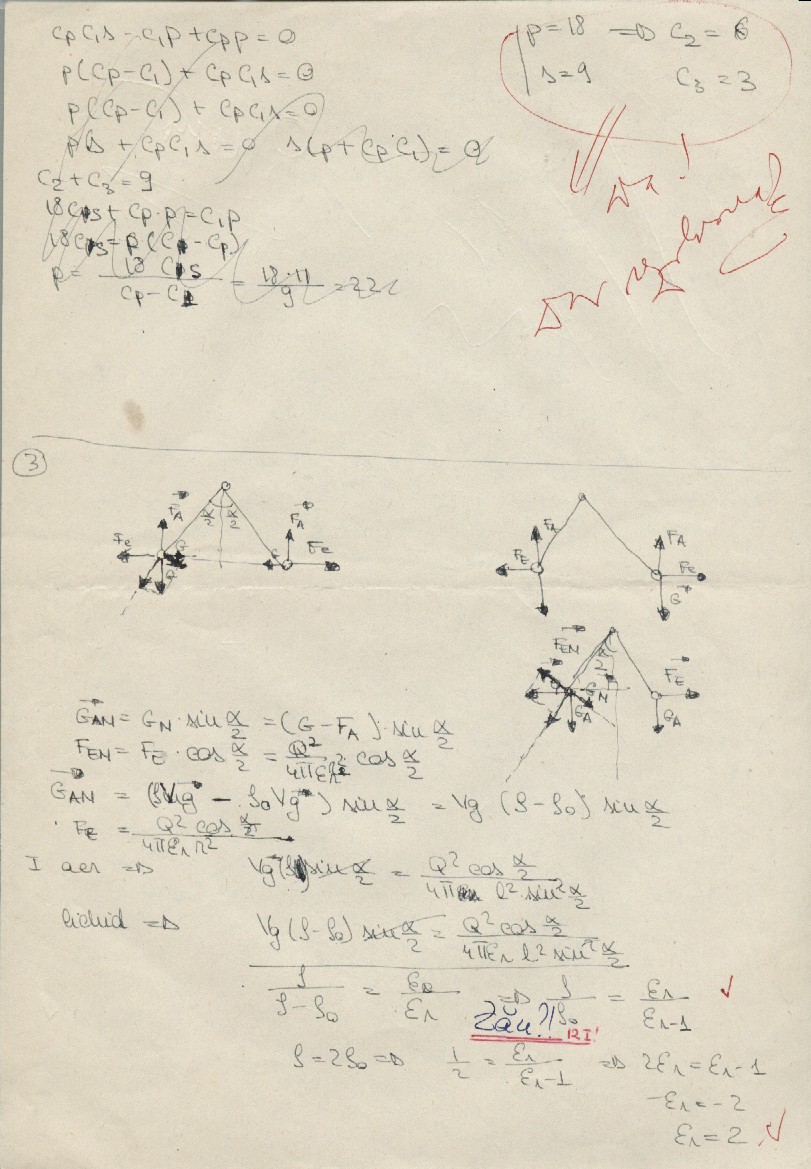 CpC₁s - C₁p + Cpp = 0
p(Cp - C₁) + CpC₁s = 0
p(Cp - C₁) + CpC₁s = 0
ps + CpC₁s = 0 s(p + CpC₁) = 0
C₂ + C₃ = 9
18Cps + Cp·p = C₁p
p = 18 Cps / = 18·11 / 9 = 22
p = 18 ⇒ C₂ = 6
s = 9 C₃ = 3
Da!
③
F_A F_A
α/2 α/2
F_e F_e
F_A F_A
F_E F_e
G
F_EN α/2 F_E
G_N
G_A G_A
G_AN = G_N · sin α/2 = (G - F_A) · sin α/2
F_EN = F_E · cos α/2 = Q² / 4πεr² cos α/2
G_AN = (ρVg - ρ₀Vg) sin α/2 = Vg (ρ - ρ₀) sin α/2
F_E = Q² cos α/2 / 4πε_r r²
I aer ⇒ Vg ρ sin α/2 = Q² cos α/2 / 4π l² sin² α/2
lichid ⇒ Vg (ρ - ρ₀) sin α/2 = Q² cos α/2 / 4πε_r l² sin² α/2
ρ / ρ - ρ₀ = ε₀ / ε_r ⇒ ρ / ρ₀ = ε_r / ε_r - 1 ✓
Zău?! 12 I!
ρ = 2ρ₀ ⇒ 1/2 = ε_r / ε_r - 1 ⇒ 2ε_r = ε_r - 1
-ε_r = -2
ε_r = 2 ✓